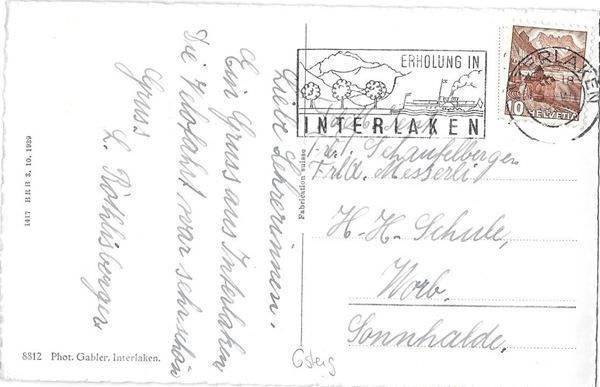 Liebe Lehrerinnen.
Ein Gruss aus Interlaken
Die Velofahrt war sehr schön
Gruss
L. Röthlisberger
1417 BRB 3. 10. 1939
8812 Phot. Gabler. Interlaken.
Fabrication suisse
ERHOLUNG IN
INTERLAKEN
INTERLAKEN
10
HELVETIA
Schaufelberger
Frl. Messerli
H.-H.-Schule,
Worb.
Sonnhalde.
Gsteig